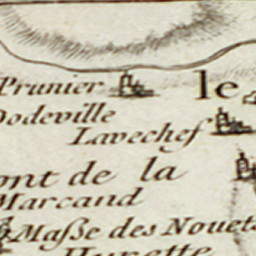 Prunier le
Dodeville
Lavechef
ont de la
Marcand
Maſse des Nouets